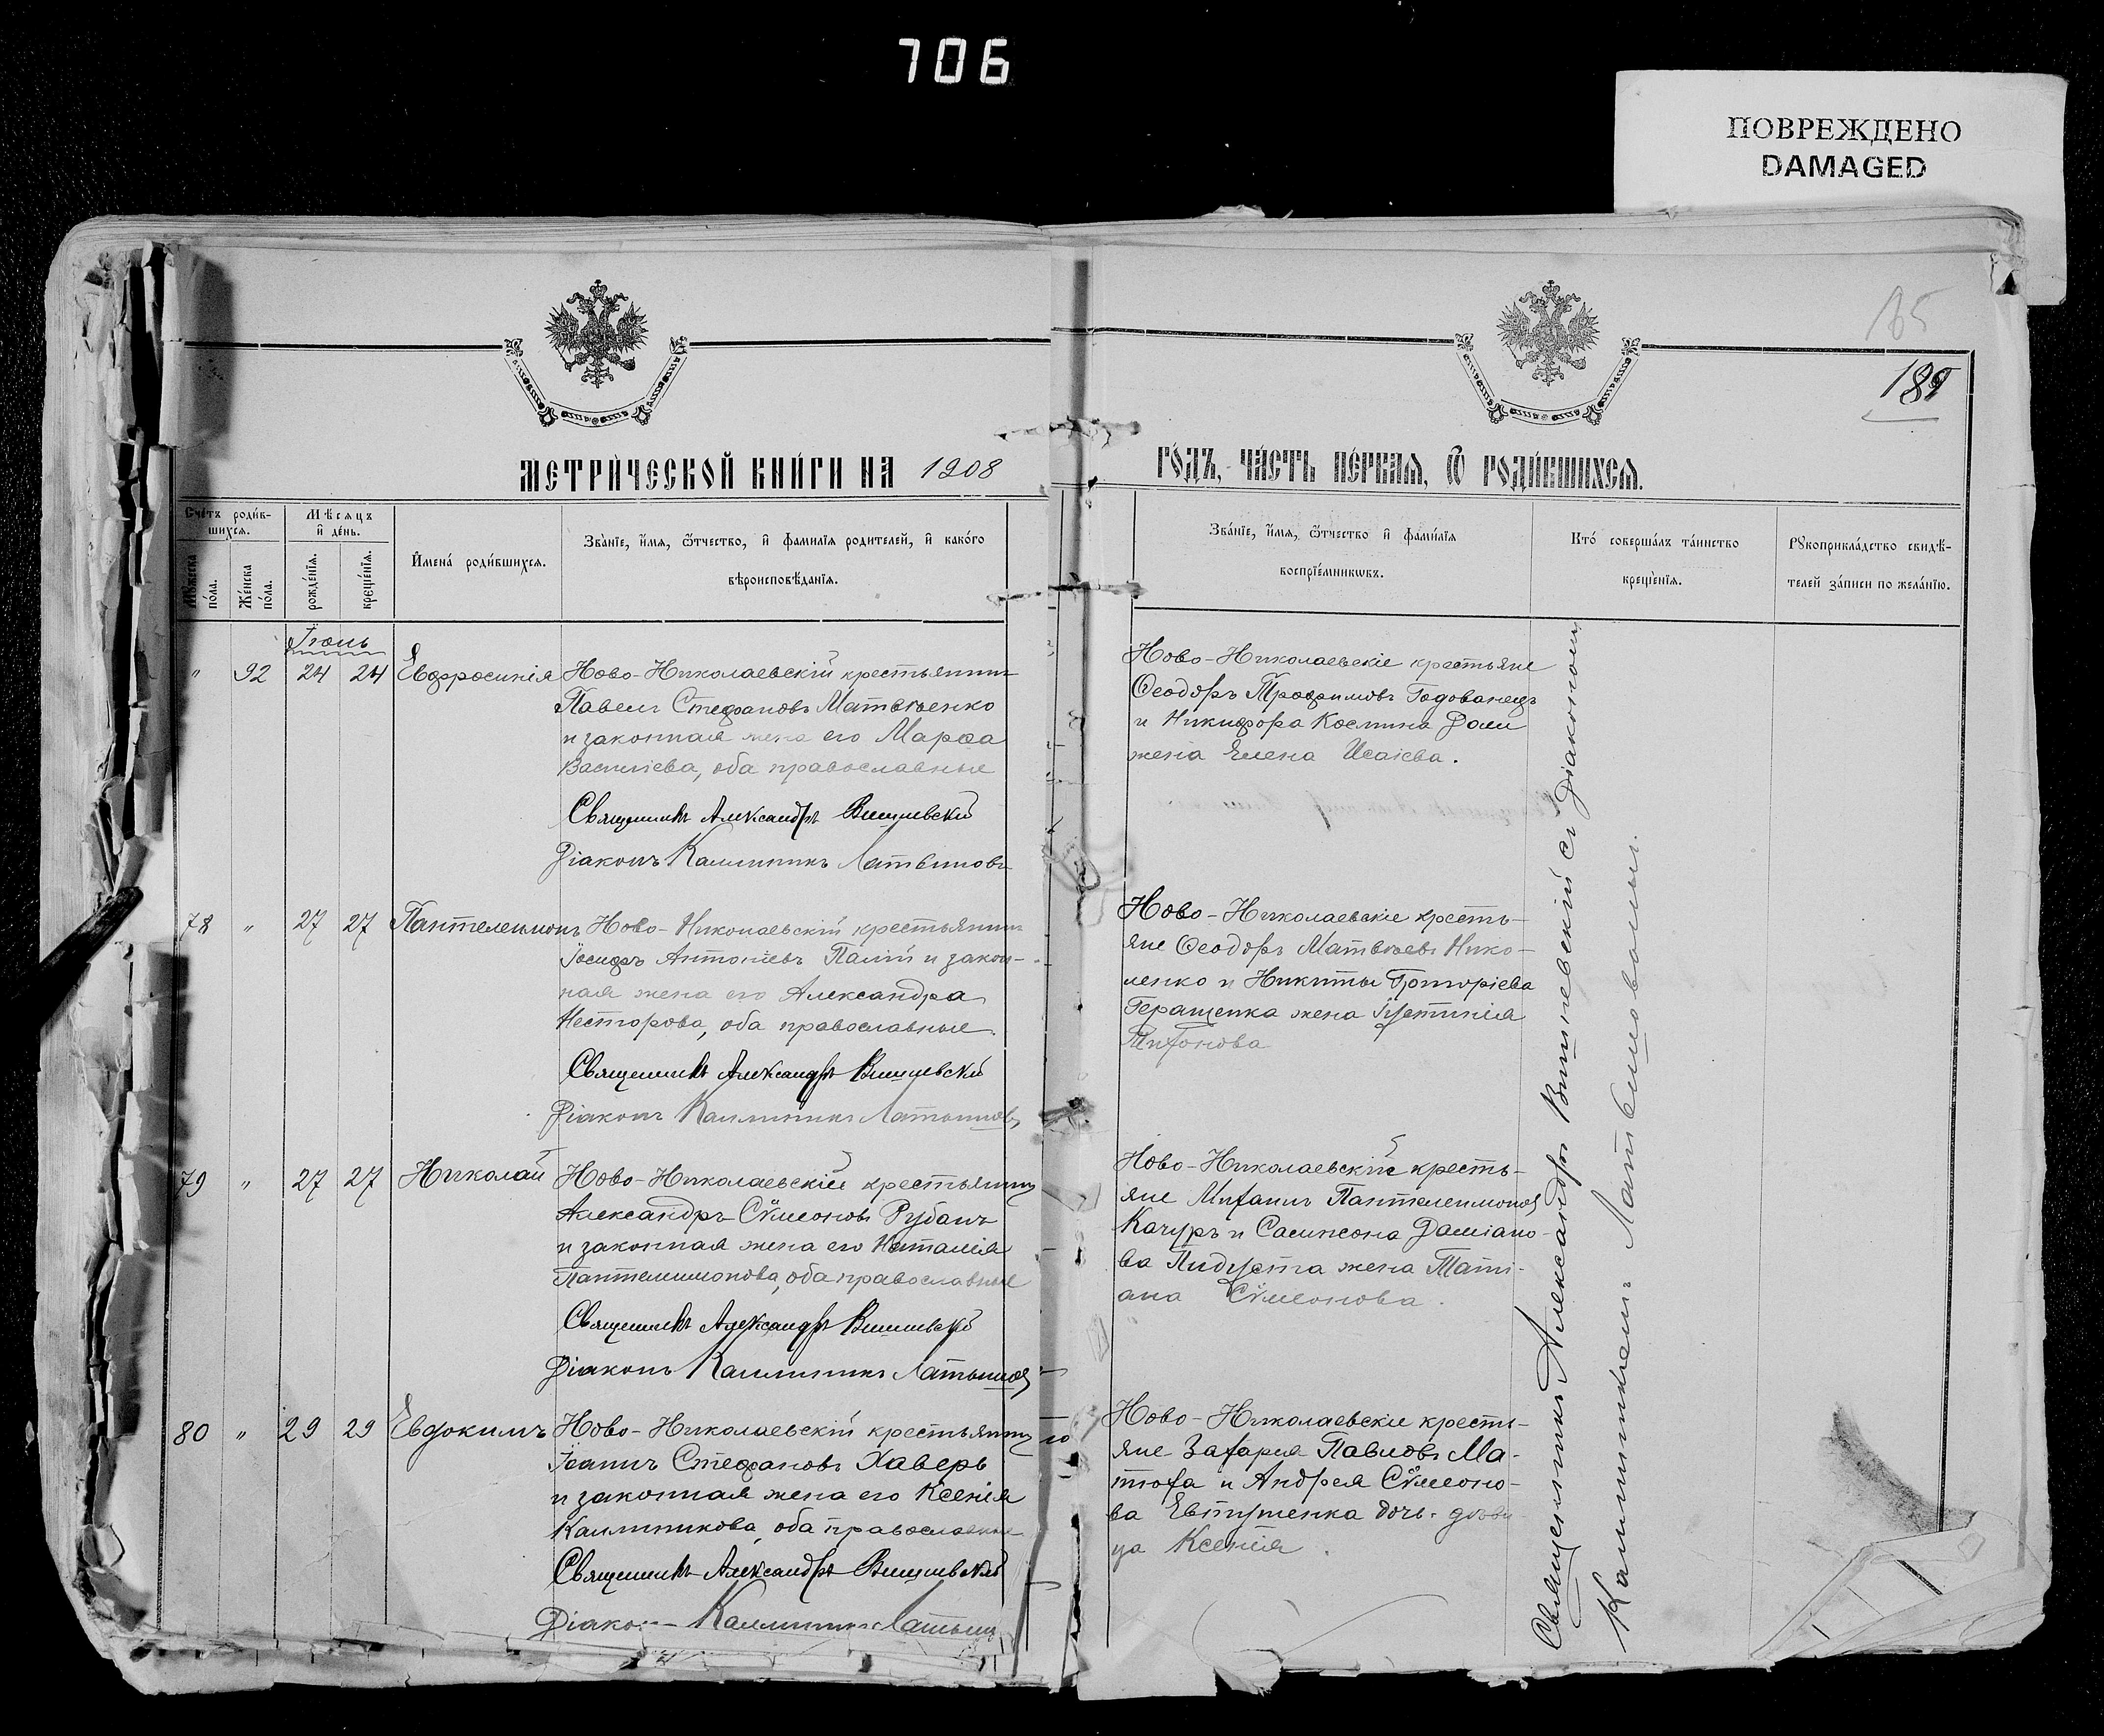 706
ПОВРЕЖДЕНО
DAMAGED
165
189
МЕТРИ́ЧЕСКОЙ КНИ́ГИ НА 1908
ГО́ДЪ, ЧА́СТЬ ПЕ́РВАЯ, Ѿ РОДИ́ВШИХСЯ.
Счётъ роди́в-
шихся.
Мѣсяцъ
и҆ де́нь.
Мꙋ́жеска
по́ла.
Же́нска
по́ла.
рожде́нїя.
креще́нїя.
И҆мена̀ роди́вшихся.
Зва́нїе, и҆́мя, ѻ҆́тчество, и҆ фами́лїя роди́телей, и҆ како́гѡ
вѣроисповѣ́данїя.
Зва́нїе, и҆́мя, ѻ҆́тчество и҆ фами́лїя
воспрїе́мникѡвъ.
Кто̀ соверша́лъ та́инство
креще́нїя.
Рꙋкоприкла́дство свидѣ́-
телей за́писи по жела́нїю.
Іюнь
" 92 24 24 Евфросинія
Ново-Николаевскій крестьянинъ
Павелъ Стефановъ Матвѣенко
и законная жена его Марѳа
Василіева, оба православные
Священникъ Александръ Вишневскій
Діаконъ Каллиникъ Латвиновъ
Ново-Николаевскіе крестьяне
Ѳеодоръ Трофимовъ Годованецъ
и Никифора Космина
жена Елена Исаіева.
78 " 27 27 Пантелеимонъ
Ново-Николаевскій крестьянинъ
Іосифъ Антоніевъ Палій и закон-
ная жена его Александра
Несторова, оба православные.
Священникъ Александръ Вишневскій
Діаконъ Каллиникъ
Ново-Николаевскіе кресть-
яне Ѳеодоръ Матвѣевъ Нико-
ленко и Никиты Григоріева
Геращенка жена Іустинія
79 " 27 27 Николай
Ново-Николаевскій крестьянинъ
Александръ Сѵмеоновъ Рубанъ
и законная жена его Наталія
Пантелеимонова, оба православные
Священникъ Александръ Вишневскій
Діаконъ Каллиникъ
Ново-Николаевскіе кресть-
яне Михаилъ Пантелеимоновъ
Качуръ и Сампсона Даміано-
ва Пидуста жена Таті-
ана Сѵмеонова.
80 " 29 29 Евдокимъ
Ново-Николаевскій крестьянинъ
Іоаннъ Стефановъ Хаверь
и законная жена его Ксенія
Каллиникова, оба православные
Священникъ Александръ Вишневскій
Діаконъ Каллиникъ
Ново-Николаевскіе кресть-
яне Захарія Павловъ Ма-
тюха и Андрея Сѵмеоно-
ва Евтушенка дочь дѣви-
ца Ксенія.
Священникъ Александръ Вишневскій съ діакономъ
Каллиникомъ Латвиновымъ.